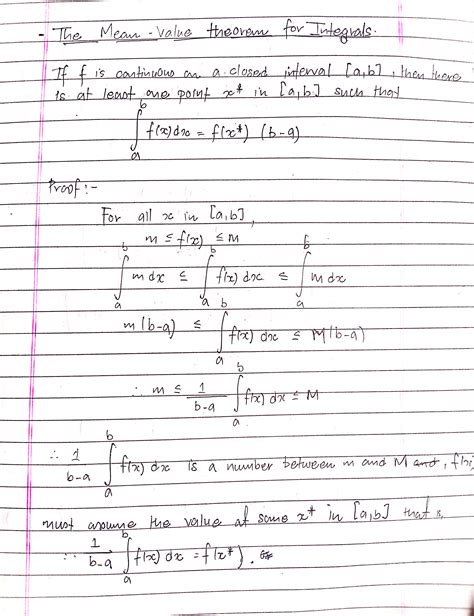 - The Mean-Value theorem for Integrals.
If f is continuous on a closed interval [a,b], then there
is at least one point x* in [a,b] such that
∫_a^b f(x)dx = f(x*) (b-a)
Proof:-
For all x in [a,b],
m ≤ f(x) ≤ M
∫_a^b m dx ≤ ∫_a^b f(x) dx ≤ ∫_a^b m dx
m(b-a) ≤ ∫_a^b f(x) dx ≤ M(b-a)
∴ m ≤ 1/(b-a) ∫_a^b f(x) dx ≤ M
∴ 1/(b-a) ∫_a^b f(x) dx is a number between m and M and,
must assume the value at some x* in [a,b] that is,
∴ 1/(b-a) ∫_a^b f(x) dx = f(x*).